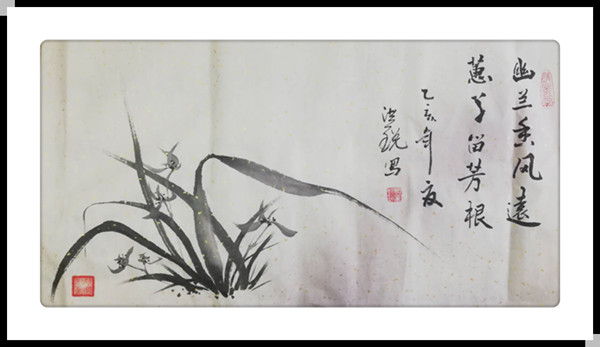 幽兰香风遠
蕙草留芳根
乙亥年夏
写